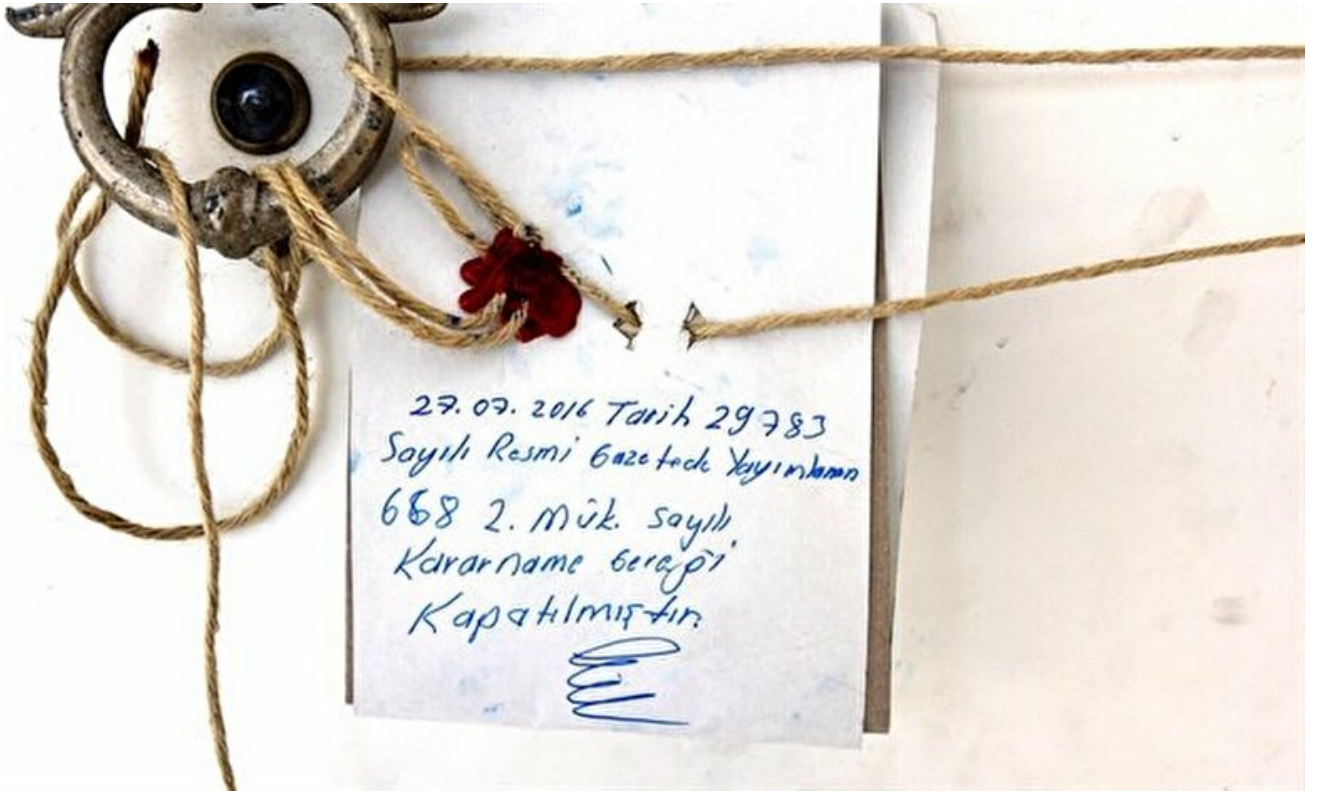 27.07.2016 Tarih 29783
Sayılı Resmi Gazetede Yayımlanan
668 2. Mük. sayılı
Kararname Gereği
Kapatılmıştır.